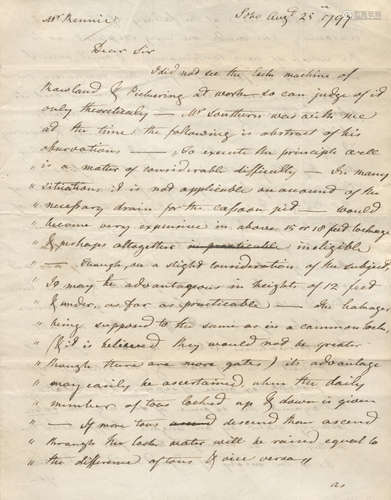 Mr Rennie Soho Augt 25th 1797
Dear Sir
I did not see the Lock machine of
Rowland & Pickering at work so can judge of it
only theoretically — Mr Southern was with me
at the time the following is abstract of his
observations — To execute the principle well
" is a matter of considerable difficulty — In many
" situations it is not applicable on account of the
" necessary drain for the caisson pit — would
" become very expensive in above 15 or 18 feet lockage
" & perhaps altogether in practicable ineligible
" — Though, on a slight consideration of the subject,
" It may be advantageous in heights of 12 feet
" & under, as far as practicable — the leakages
" being supposed to the same as in a common lock,
" (& it is believed they would not be greater
" though there are more gates) its advantage
" may easily be ascertained when the daily
" number of tons locked up & down is given
" — If more tons descend than ascend
" through the Lock water will be raised equal to
" the difference of tons & vice versa "
as